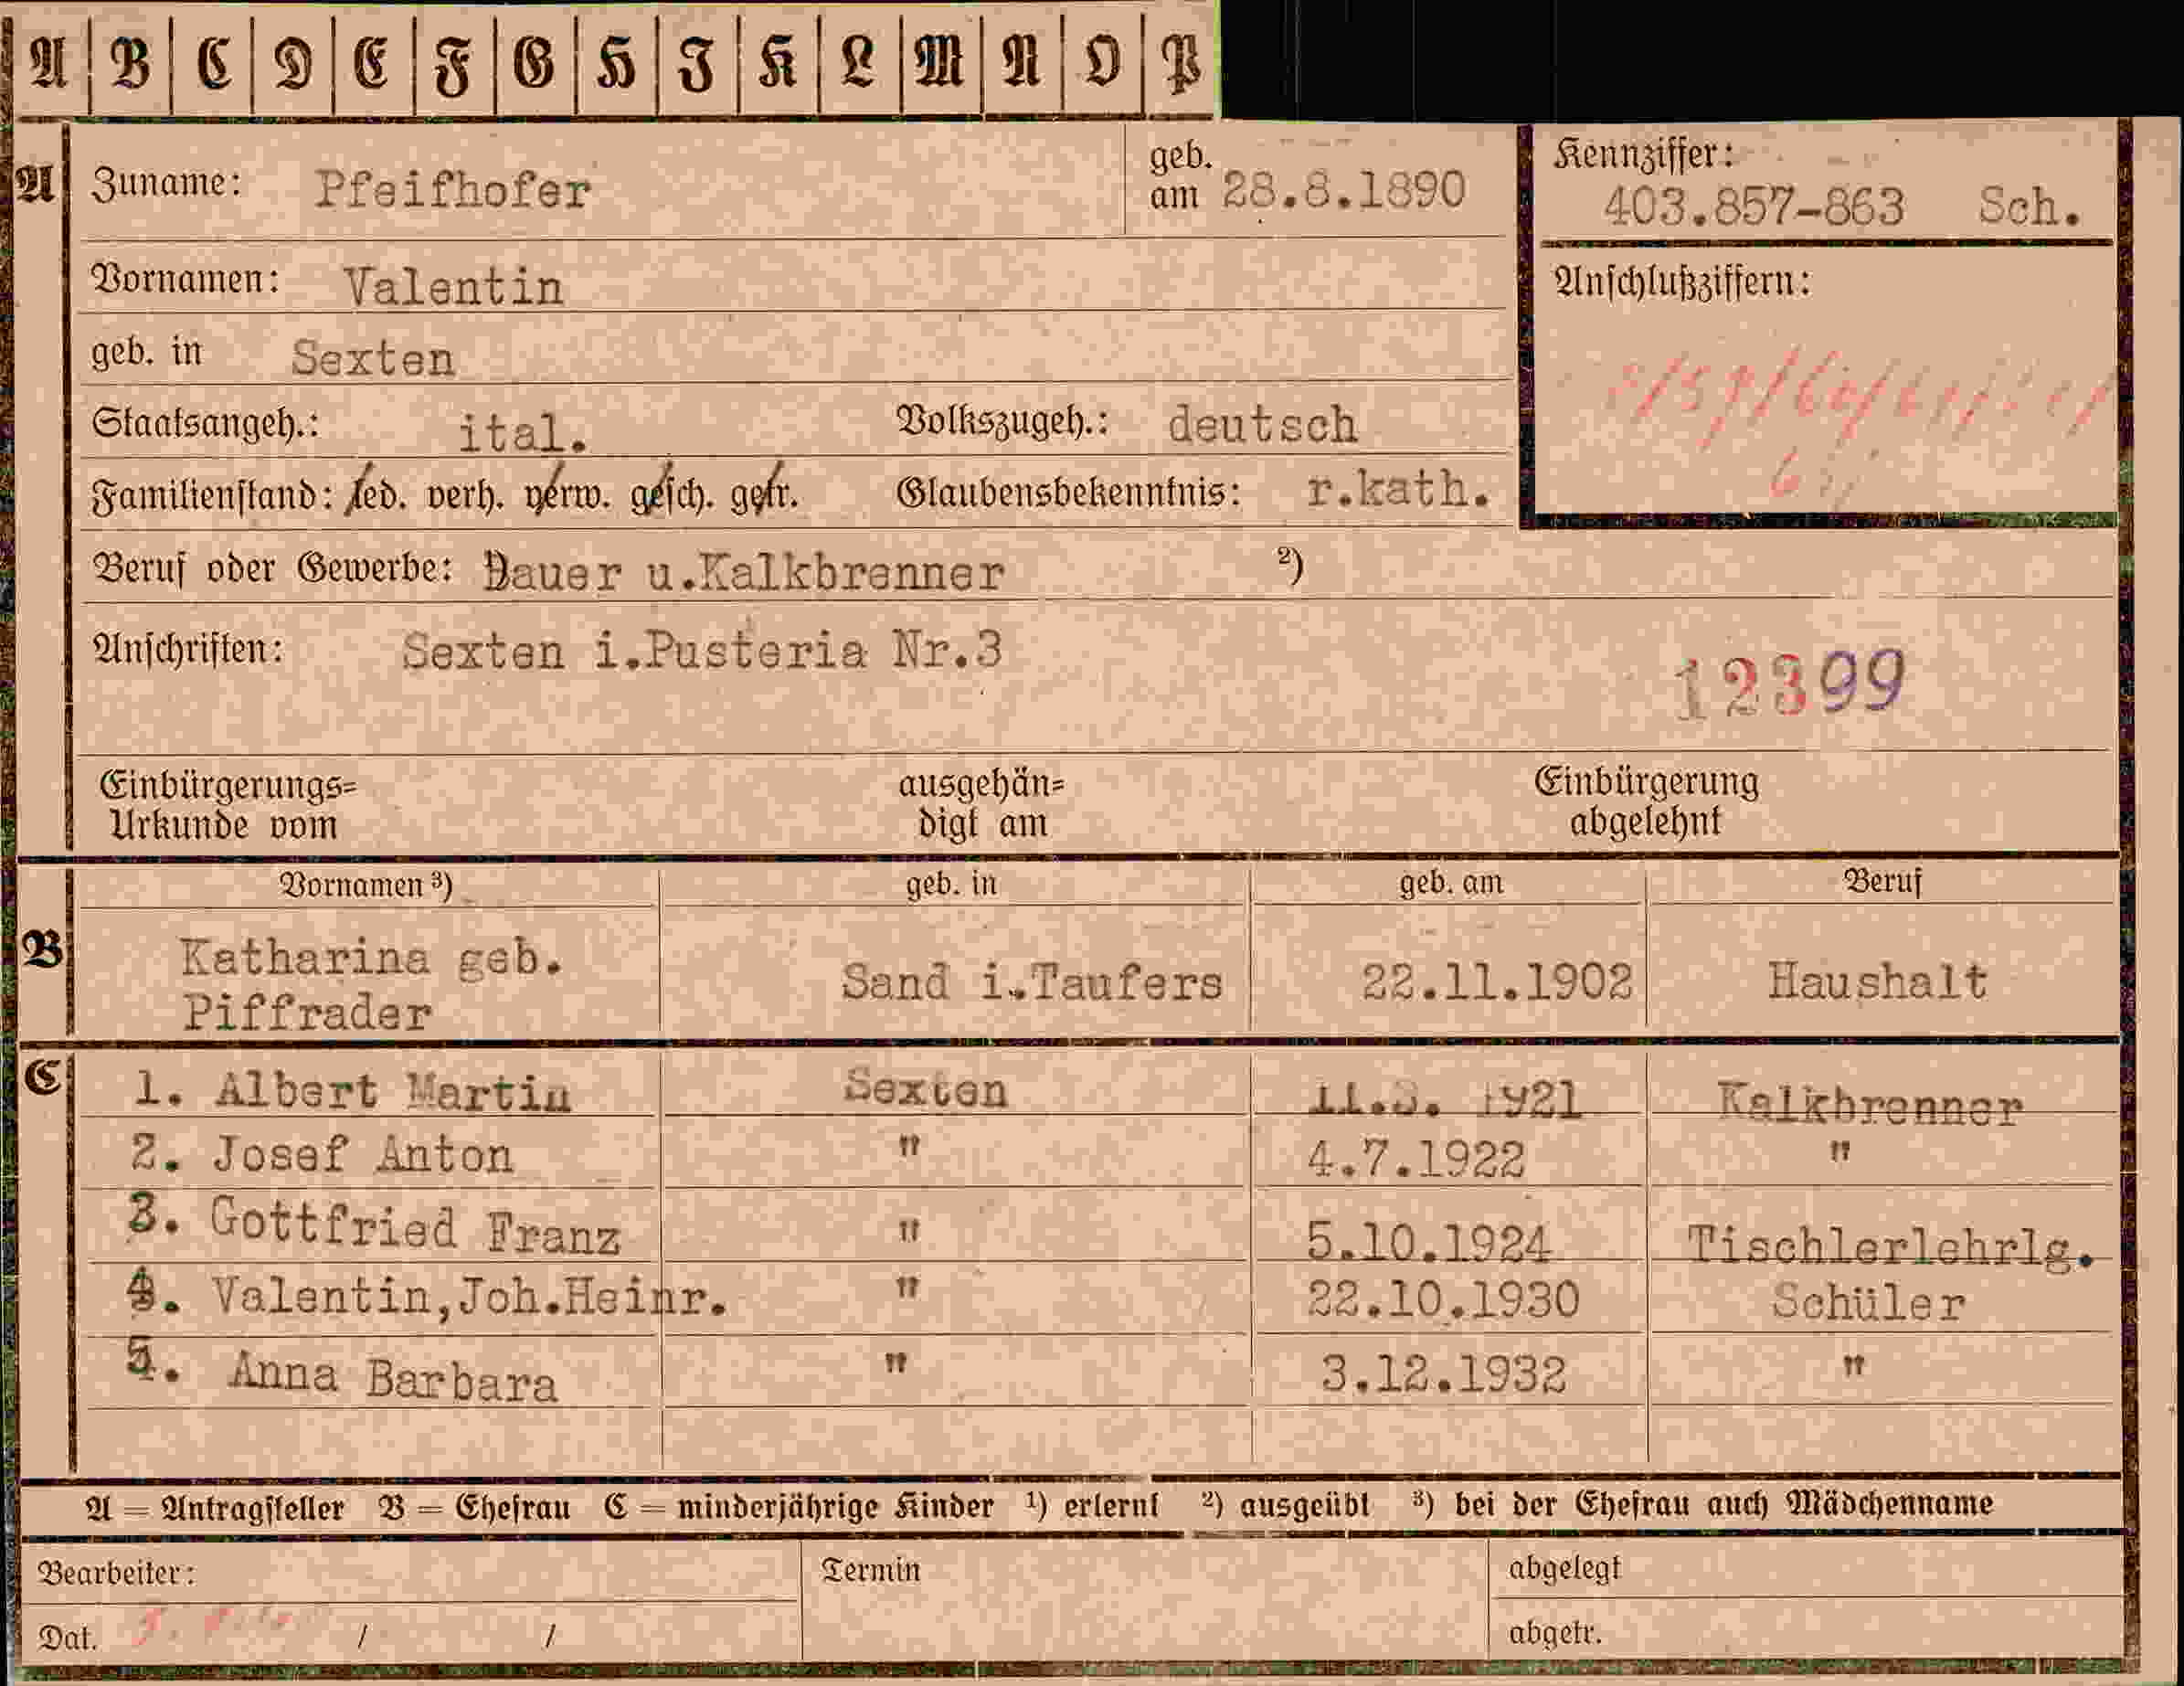 A B C D E F G H I K L M N O P
A Zuname: Pfeifhofer geb. am 28.8.1890
Kennziffer: 403.857-863 Sch.
Vornamen: Valentin
Anschlußziffern:
geb. in Sexten
Staatsangeh.: ital. Volkszugeh.: deutsch
Familienstand: led. verh. verw. gesch. getr. Glaubensbekenntnis: r.kath.
Beruf oder Gewerbe: Bauer u.Kalkbrenner ²)
Anschriften: Sexten i.Pusteria Nr.3
12399
Einbürgerungs= ausgehän= Einbürgerung
Urkunde vom digt am abgelehnt
Vornamen ³) geb. in geb. am Beruf
B Katharina geb. Sand i.Taufers 22.11.1902 Haushalt
Piffrader
C 1. Albert Martin Sexten 1921 Kalkbrenner
2. Josef Anton " 4.7.1922 "
3. Gottfried Franz " 5.10.1924 Tischlerlehrlg.
4. Valentin,Joh.Heinr. " 22.10.1930 Schüler
5. Anna Barbara " 3.12.1932 "
A = Antragsteller B = Ehefrau C = minderjährige Kinder ¹) erlernt ²) ausgeübt ³) bei der Ehefrau auch Mädchenname
Bearbeiter: Termin abgelegt
Dat. / / abgetr.